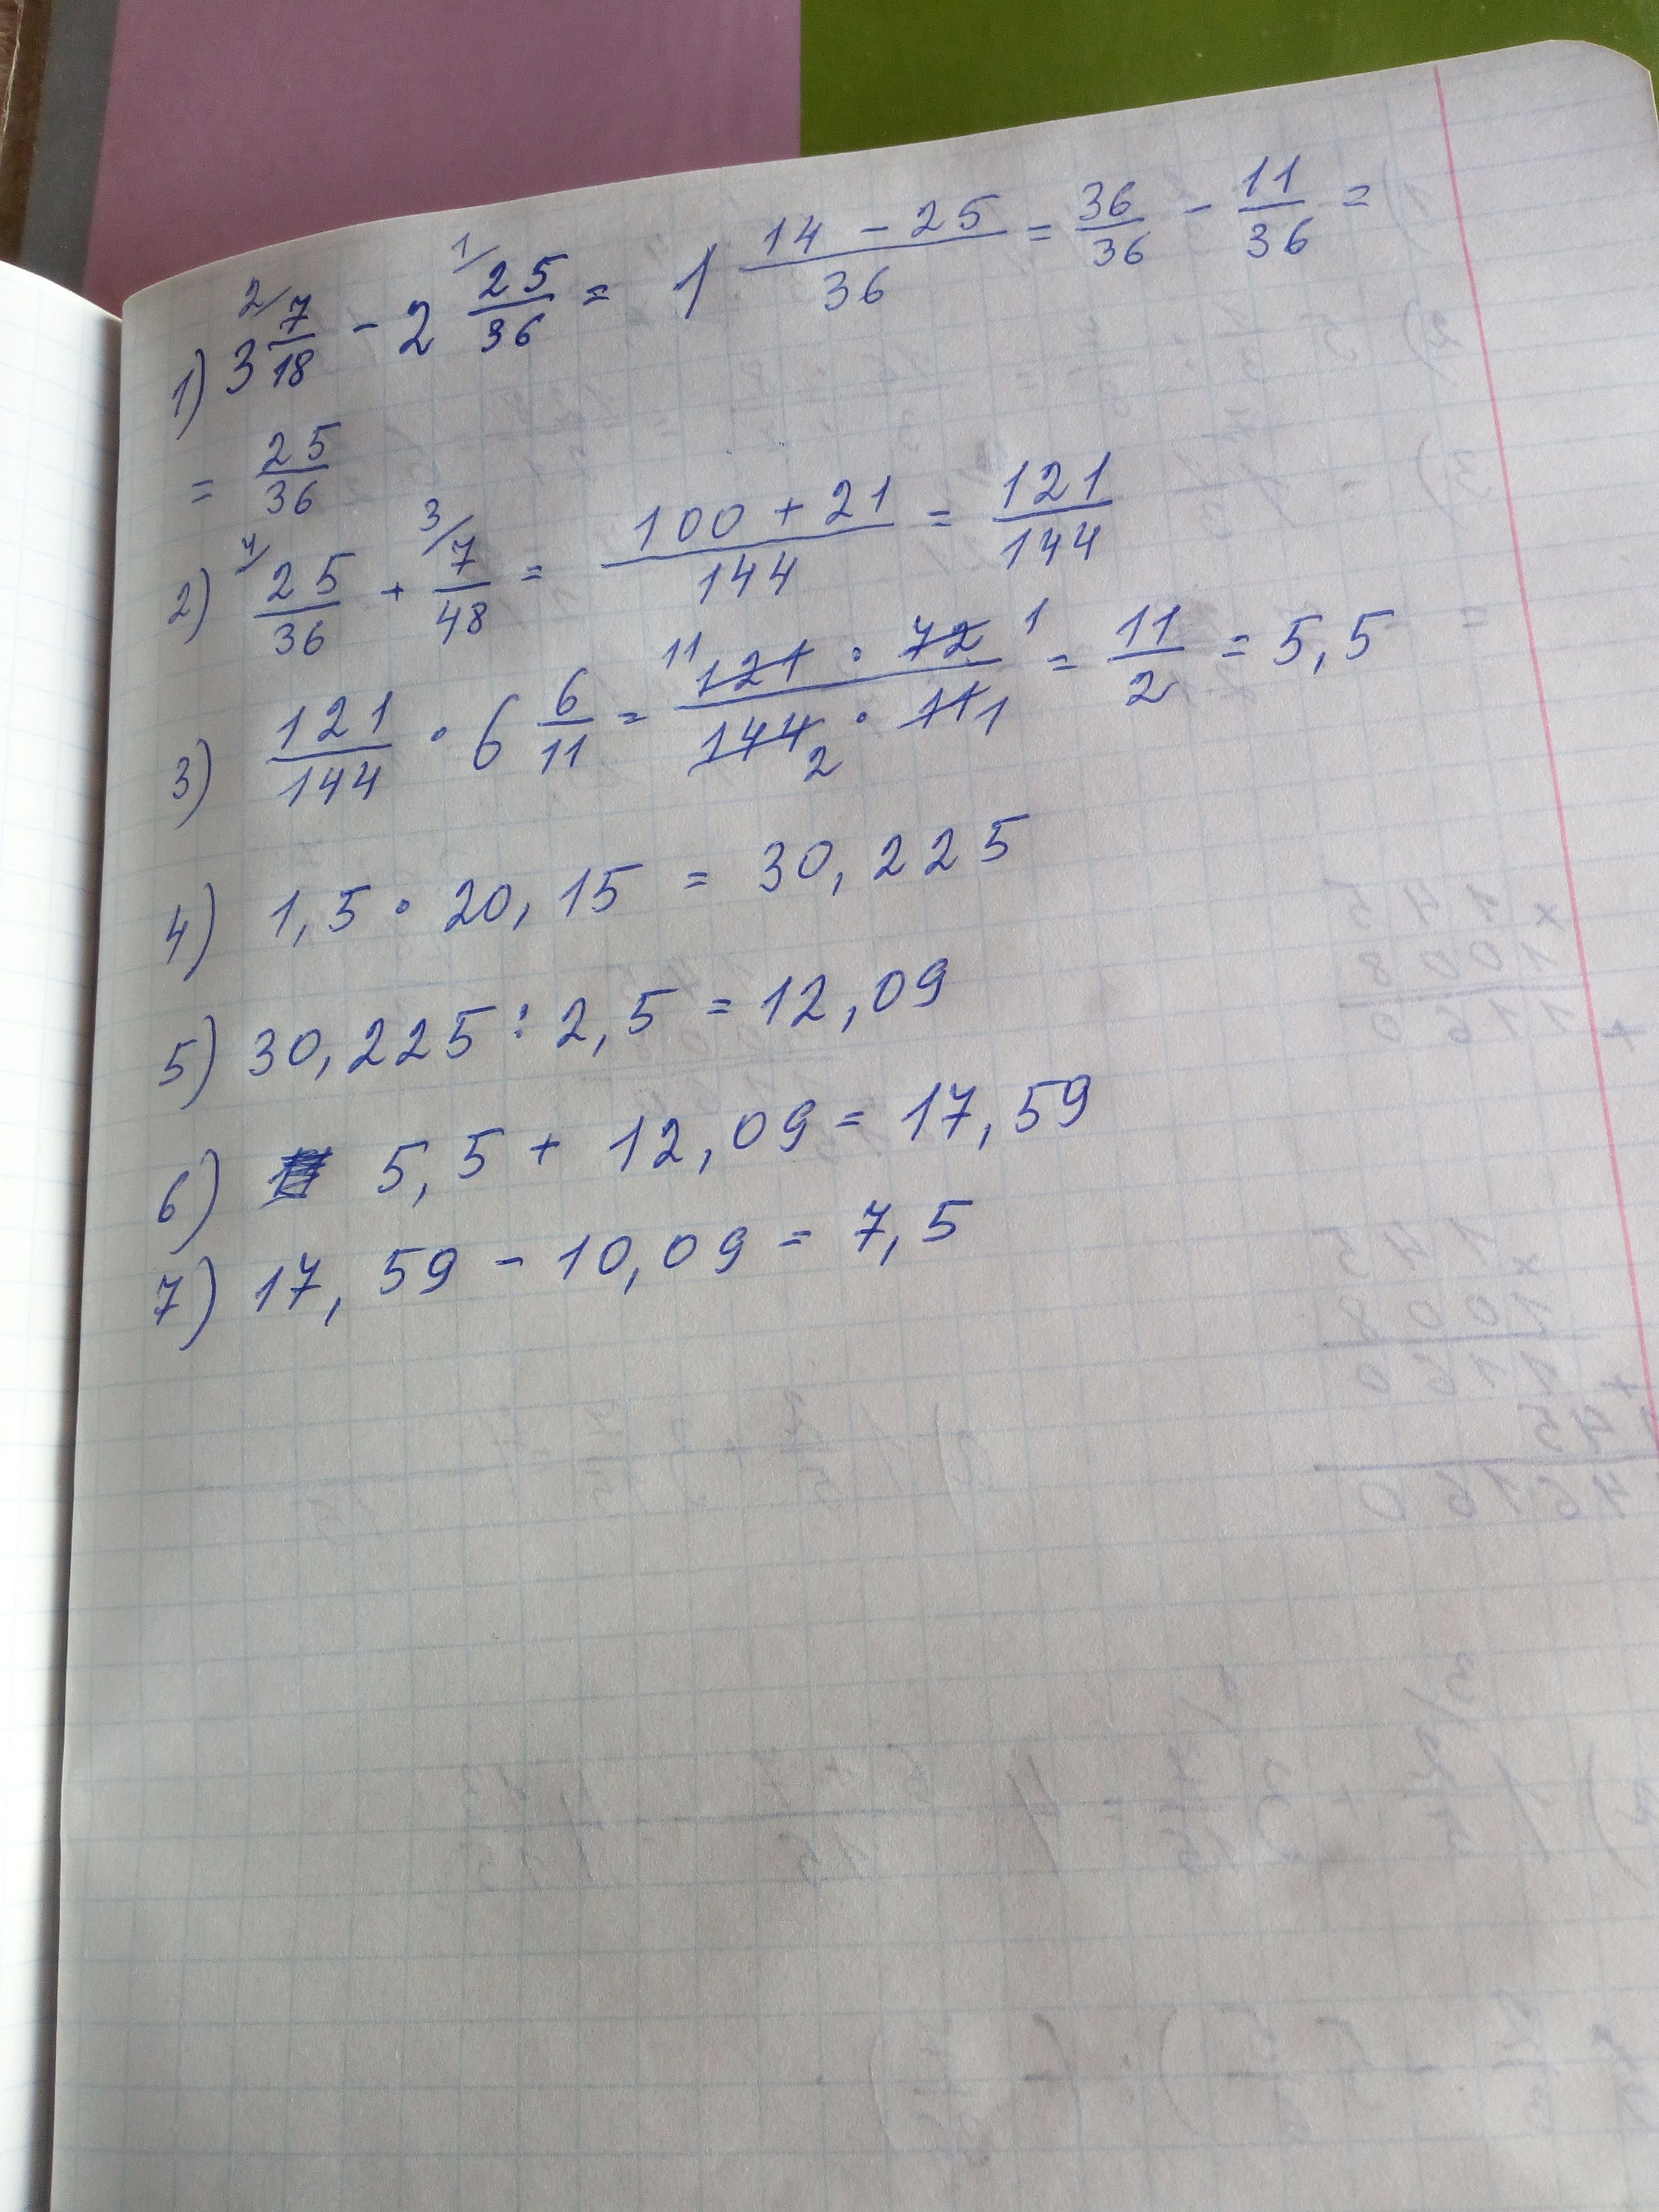 1) 3 2/ 7/18 - 2 1/ 25/36 = 1 (14 - 25)/36 = 36/36 - 11/36 =
= 25/36
2) 4/ 25/36 + 3/ 7/48 = (100 + 21)/144 = 121/144
3) 121/144 · 6 6/11 = 11 (121 · 72) 1 / (144 2 · 11 1) = 11/2 = 5,5
4) 1,5 · 20,15 = 30,225
5) 30,225 : 2,5 = 12,09
6) 5,5 + 12,09 = 17,59
7) 17,59 - 10,09 = 7,5